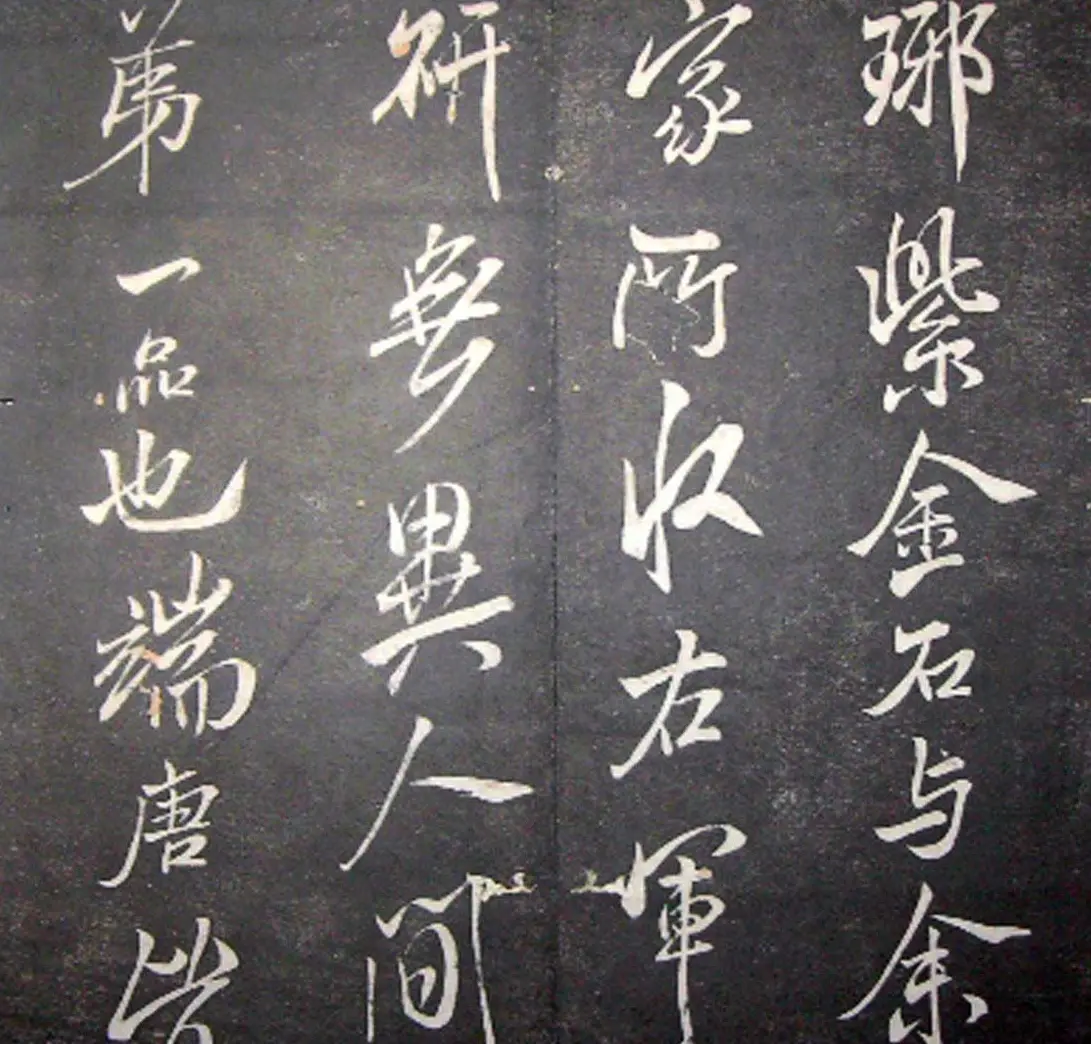 琊紫金石与余
家所收右軍
硏無異人間
第一品也端唐皆